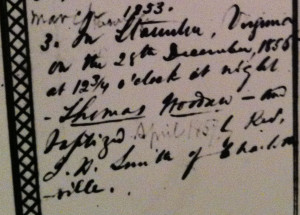 1833.
3. In Staunton, Virginia
on the 28th December, 1856
at 12¾ o'clock at night
- Thomas Woodrow - and
baptized April 1857 by Rev.
J. H. Smith of Charlottes
-ville.